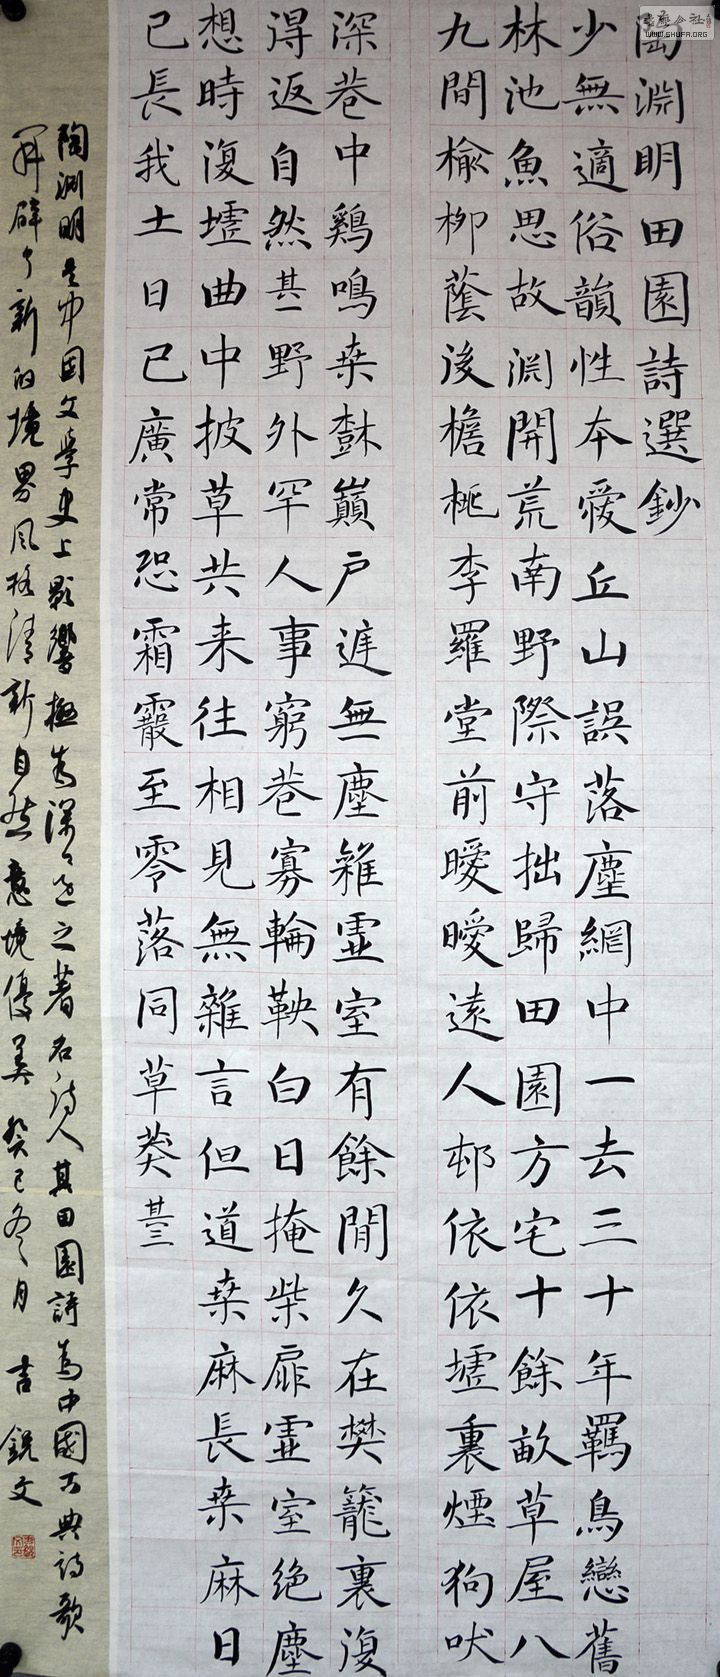 陶淵明田園詩選鈔
少無適俗韻性本愛丘山誤落塵網中一去三十年羈鳥戀舊
林池魚思故淵開荒南野際守拙歸田園方宅十餘畝草屋八
九間榆柳蔭後檐桃李羅堂前曖曖遠人邨依依墟裏煙狗吠
深巷中鷄鳴桑樹巔戶庭無塵雜虛室有餘閒久在樊籠裏復
得返自然其一野外罕人事窮巷寡輪鞅白日掩柴扉虛室絕塵
想時復墟曲中披草共来往相見無雜言但道桑麻長桑麻日
已長我土日已廣常恐霜霰至零落同草莽其二
陶淵明是中国文學史上影響極為深遠之著名詩人其田園詩為中國古典詩歌
開辟了新的境界風格清新自然意境優美 癸巳冬月 吉銳文
WWW.SHUFA.ORG